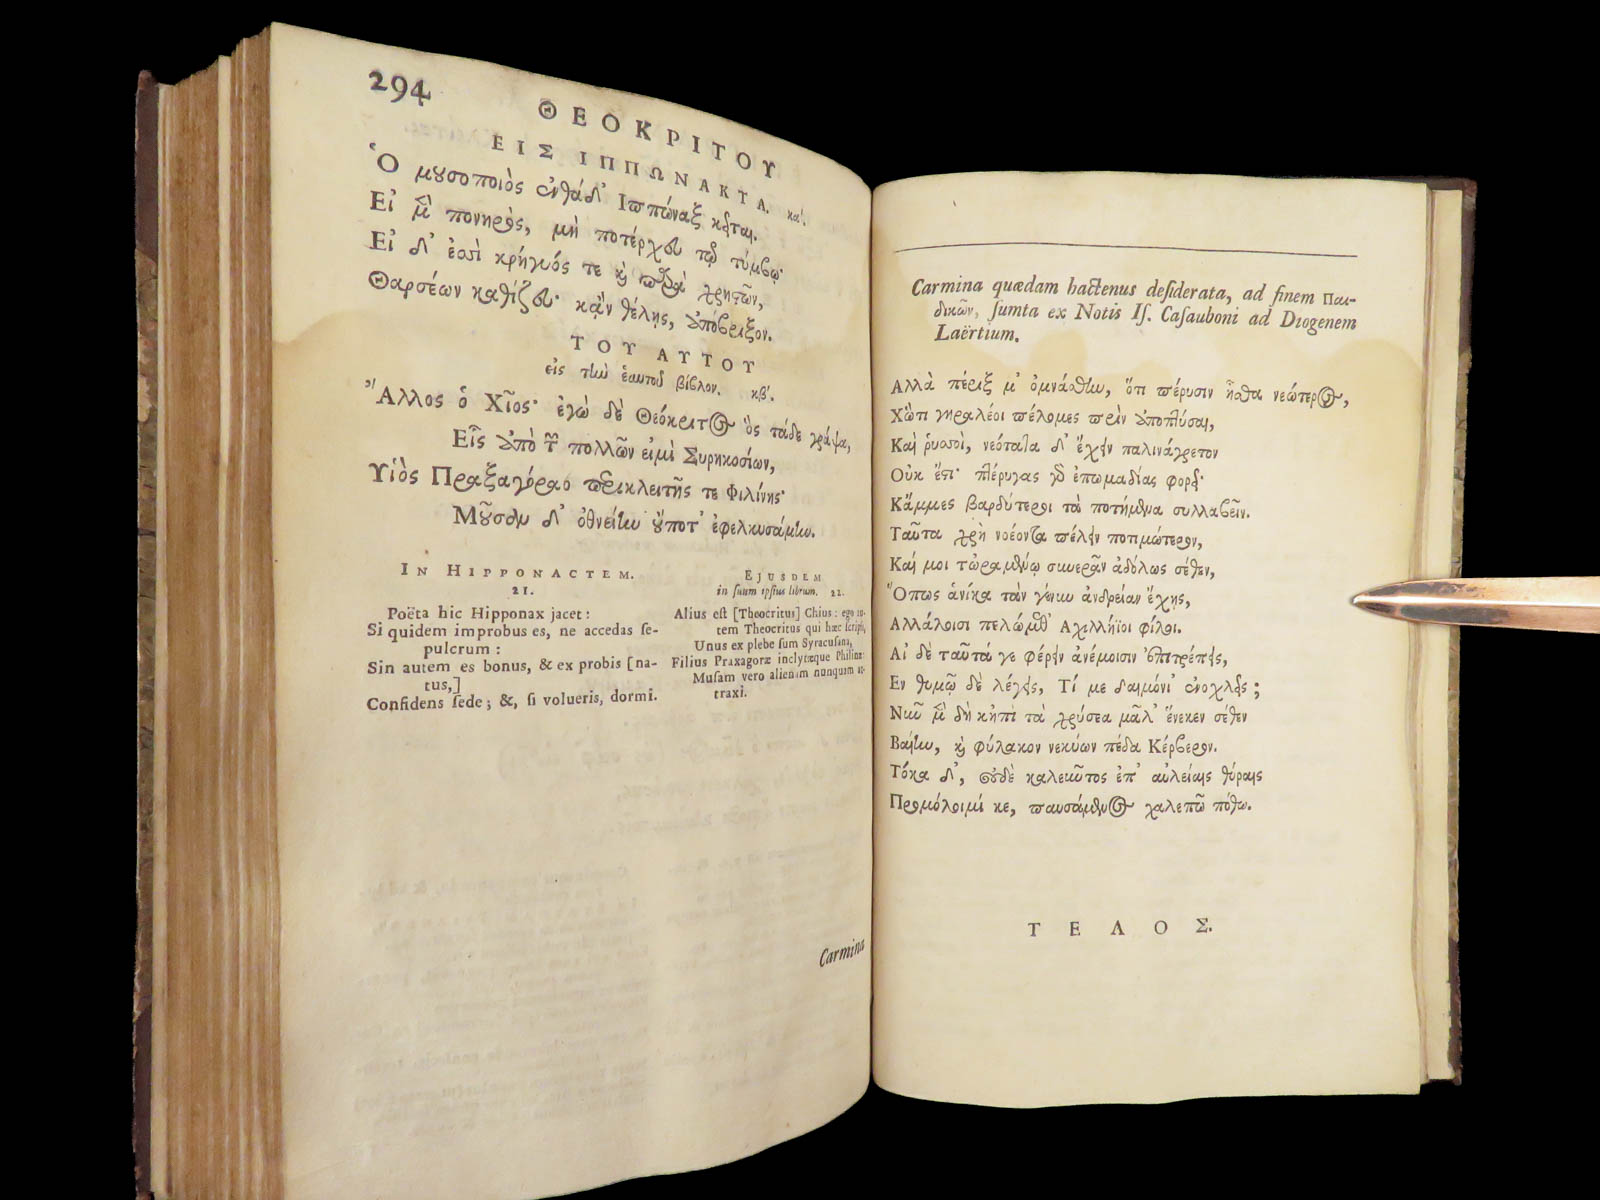 294
ΘΕΟΚΡΙΤΟΥ
ΕΙΣ ΙΠΠΩΝΑΚΤΑ. κα'.
Ὁ μουσοποιὸς ἐνθάδ' Ιππώναξ κεῖται.
Εἰ μὲν πονηρὸς, μὴ ποτέρχευ τῷ τύμβῳ·
Εἰ δ' ἐσσὶ κρήγυός τε καὶ παρὰ χρηστῶν,
Θαρσέων καθίζευ· κἂν θέλῃς, ἀπόβριξον.
ΤΟΥ ΑΥΤΟΥ
εἰς τὴν ἑαυτοῦ βίβλον. κβ'.
Ἄλλος ὁ Χῖος· ἐγὼ δὲ Θεόκριτος ὃς τάδε γράψα,
Εἷς ἀπὸ τῶν πολλῶν εἰμὶ Συρηκοσίων,
Υἱὸς Πραξαγόραο περικλειτῆς τε Φιλίνης·
Μοῦσαν δ' ὀθνείην οὔποτ' ἐφελκυσάμην.
IN HIPPONACTEM.
21.
Poëta hic Hipponax jacet:
Si quidem improbus es, ne accedas se-
pulcrum:
Sin autem es bonus, & ex probis [na-
tus,]
Confidens sede; &, si volueris, dormi.
EJUSDEM
in suum ipsius librum. 22.
Alius est [Theocritus] Chius: ego au-
tem Theocritus qui hæc scripsi,
Unus ex plebe sum Syracusana,
Filius Praxagoræ inclytæque Philinæ:
Musam vero alienam nunquam at-
traxi.
Carmina
Carmina quædam hactenus desiderata, ad finem Παι-
δικῶν, sumta ex Notis Is. Casauboni ad Diogenem
Laërtium.
Αλλὰ πέριξ μ' ὀμνάσθην, ὅτι πέρυσιν ἦσθα νεώτερος,
Χὤτι γηραλέοι πέλομες πρὶν ἀποπτύσαι,
Καὶ ῥυσσοὶ, νεότατα δ' ἔχειν παλινάγρετον
Οὐκ ἔστι· πτέρυγας γὰρ ἐπωμαδίας φορεῖ·
Κἄμμες βαρδύτεροι τὰ ποτήμενα συλλαβεῖν.
Ταῦτα χρὴ νοέοντα πέλειν ποτιμώτερον,
Καί μοι τὠραμένῳ συνερᾶν ἀδόλως σέθεν,
Ὅπως ἁνίκα τὰν γένυν ἀνδρείαν ἔχῃς,
Αλλάλοισι πελώμεθ' Αχιλλήϊοι φίλοι.
Αἰ δὲ ταῦτά γε φέρειν ἀνέμοισιν ἐπιτρέπεις,
Εν θυμῷ δὲ λέγεις, Τί με δαιμόνι' ἐνοχλεῖς;
Νῦν μὲν δὴ κἠπὶ τὰ χρύσεα μᾶλ' ἕνεκεν σέθεν
Βαίην, καὶ φύλακον νεκύων πέδα Κέρβερον.
Τόκα δ', οὐδὲ καλεῦντος ἐπ' αὐλείαις θύραις
Προμόλοιμί κε, παυσάμενος χαλεπῶ πόθω.
ΤΕΛΟΣ.